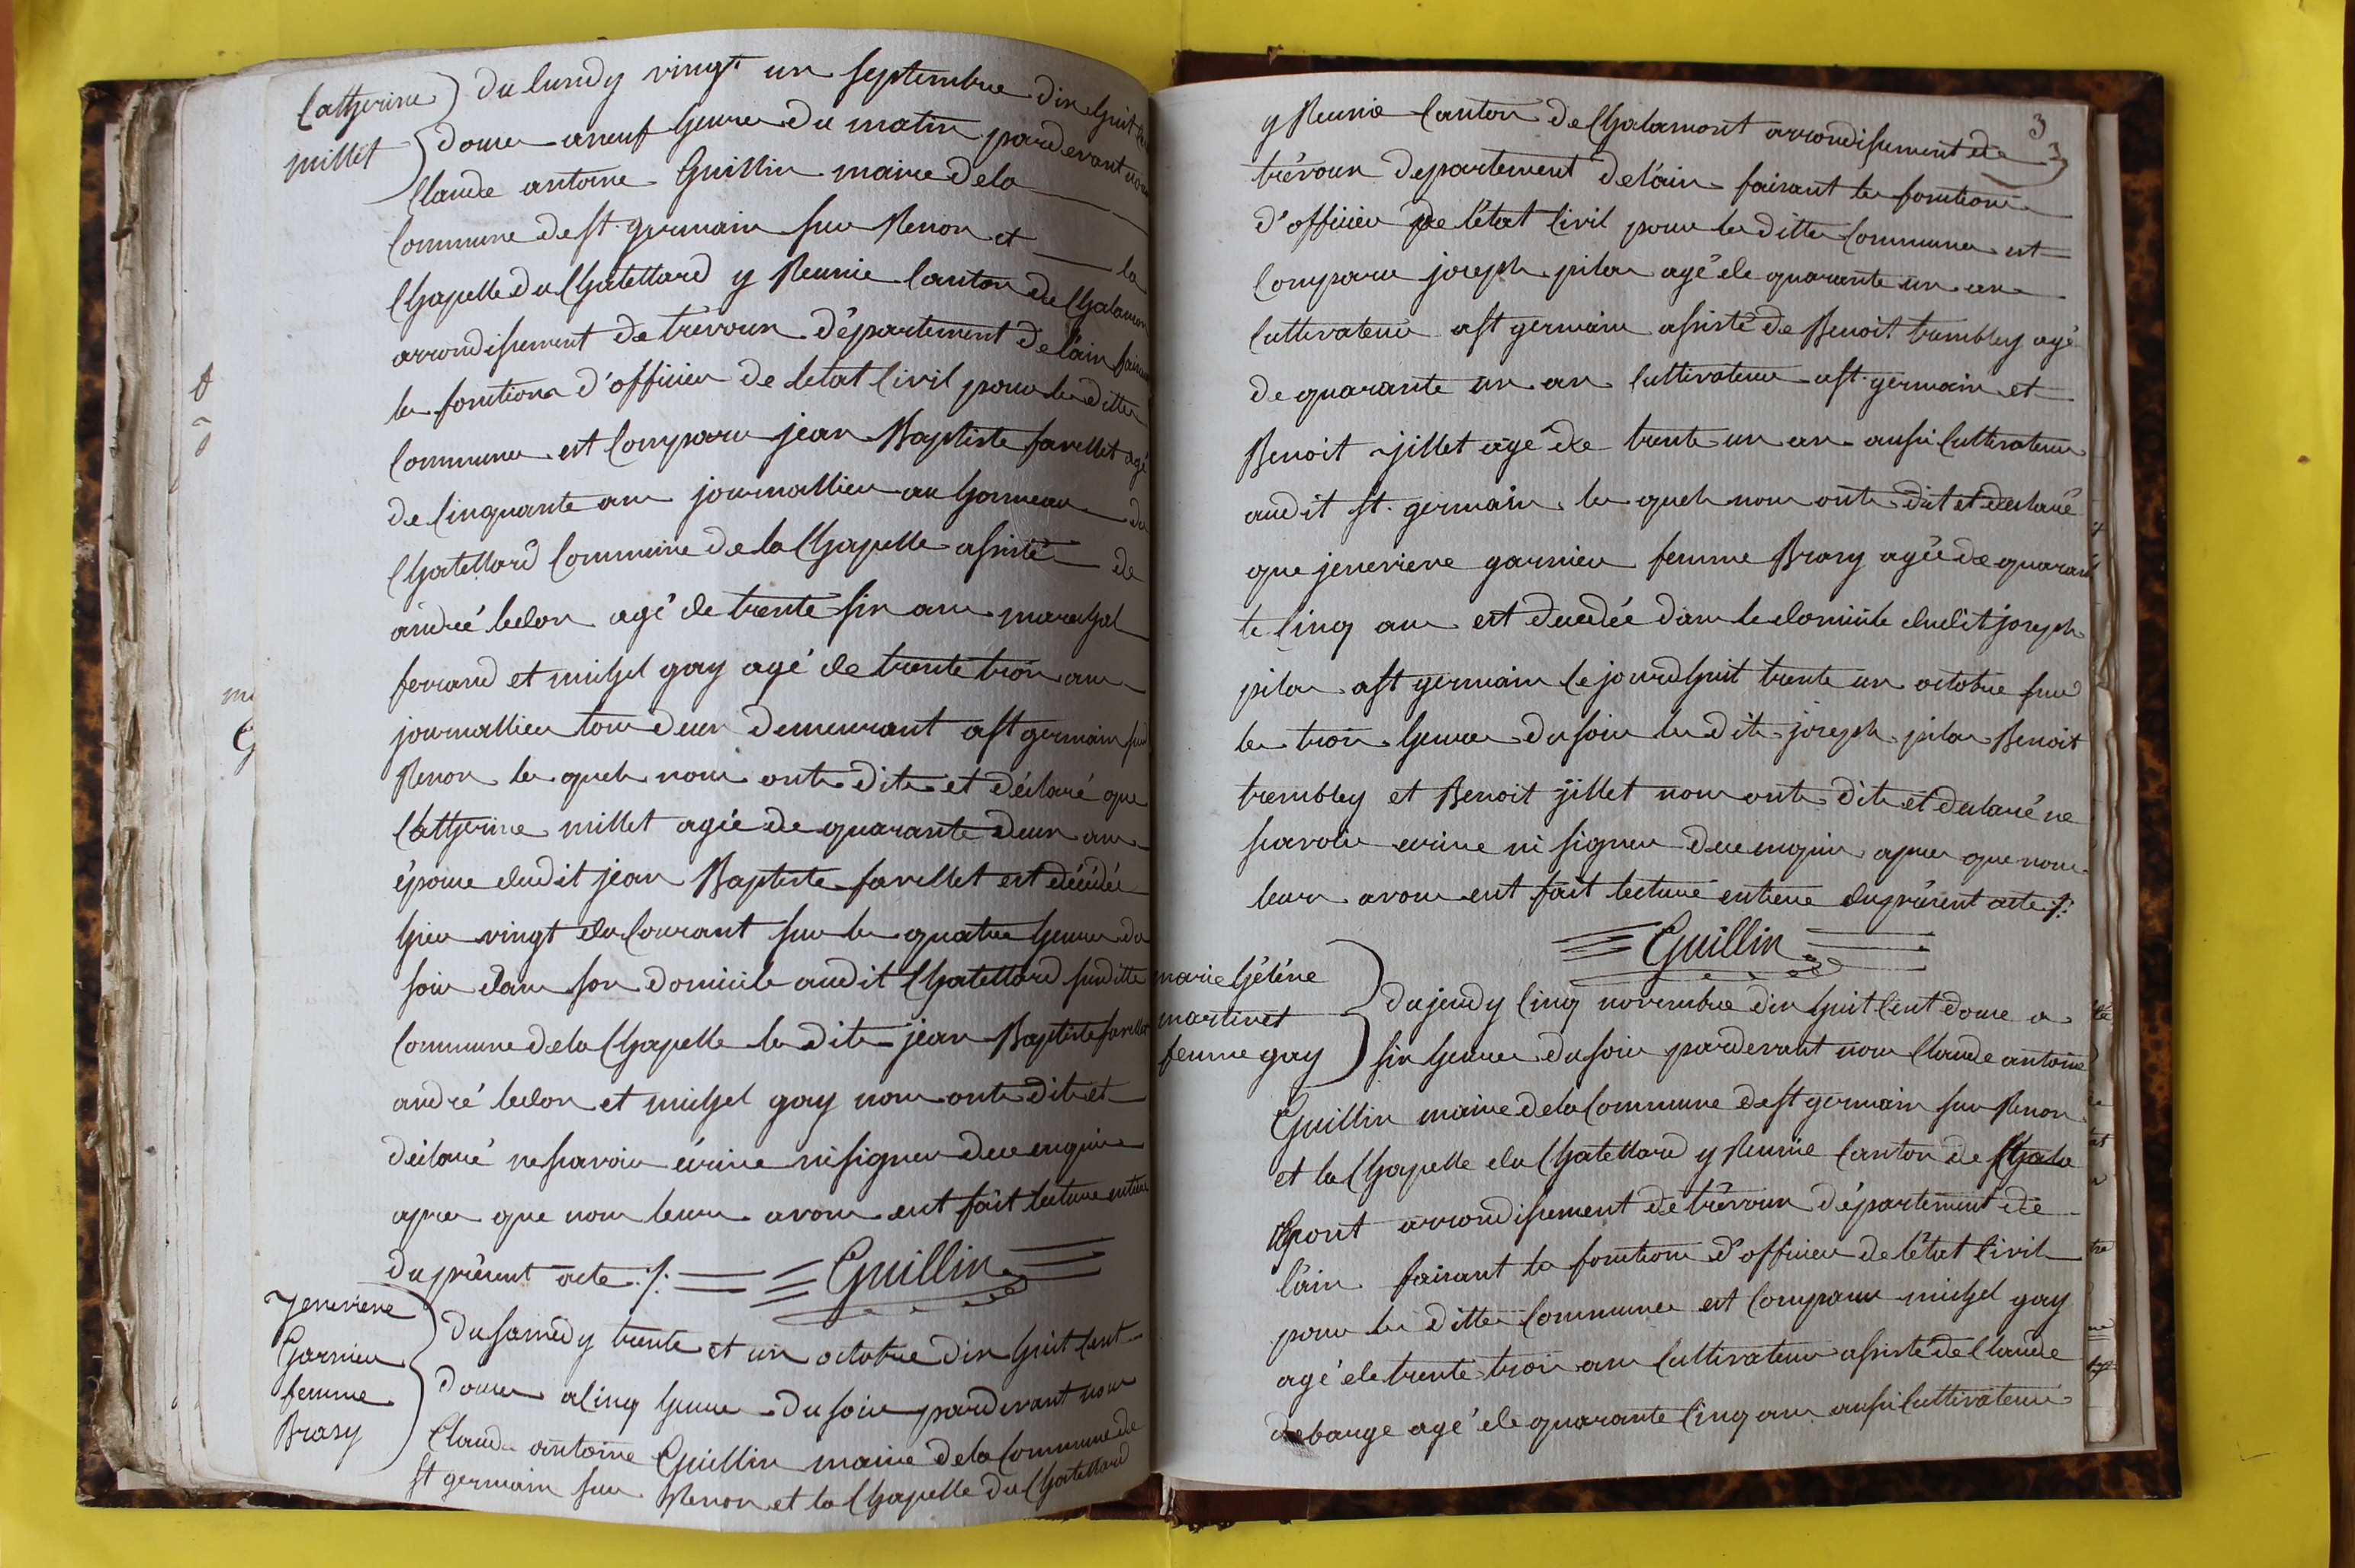 Catherine
millet
du lundy vingt un septembre dix huit
douze a neuf heures du matin pardevant nous
Claude antoine Guillin maire de la
Commune de st. germain sur Renon et la
Chapelle du Chatellard y Reunie Canton de Chalamon
arrondissement de trévoux département de l'ain faisant
les fonctions d'officier de letat Civil pour les dittes
Communes est Comparu jean Baptiste favellet agé
de Cinquante ans journallier au hameau du
Chatellard Commune de la Chapelle assisté de
andré belon agé de trente six ans marechal
ferrand et michel gay agé de trente trois ans
journallier tous deux demeurant a st germain sur
Renon les quels nous onts dits et déclaré que
Catherine millet agée de quarante deux ans
épouse dudit jean Baptiste favellet est décédée
hier vingt du Courant sur les quatre heures du
soir dans son domicile audit Chatellard susditte
Commune de la Chapelle les dits jean Baptiste favellet
andré belon et michel gay nous onts dits et
déclaré ne savoir écrire ni signer de ce enquis
apres que nous leurs avons eut fait lecture entiere
du présent acte ./. Guillin
Jenevieve
Garnier
femme
Brasy
du samedy trente et un octobre dix huit Cent
douze a Cinq heures du soir pardevant nous
Claude antoine Guillin maire de la Commune de
st germain sur Renon et la Chapelle du Chatellard
3
3
y Reunie Canton de Chalamont arrondissement de
trévoux departement de l'ain faisant les fonctions
d'officier de l'état Civil pour les dittes Communes est
Comparu joseph pilon agé de quarante un ans
Cultivateur a st germain assisté de Benoit trembley agé
de quarante un an Cultivateur a st. germain et
Benoit jillet agé de trente un an aussi Cultivateur
audit st. germain les quels nous onts dit et declaré
que jenevieve garnier femme Brasy agée de quaran
te Cinq ans est decedée dans le domicile dudit joseph
pilon a st germain Ce jourdhuit trente un octobre sur
les trois heures du soir les dits joseph pilon Benoit
trembley et Benoit jillet nous onts dits et declaré ne
savoir ecrire ni signer de ce enquis apres que nous
leurs avons eut fait lecture entiere du présent acte ./.
Guillin
marie héléne
martinet
femme gay
du jeudy Cinq novembre dix huit Cent douze a
six heures du soir pardevant nous Claude antoine
Guillin maire de la Commune de st germain sur Renon
et la Chapelle du Chatellard y Reunie Canton de Chala
mont arrondissement de trévoux département de
l'ain faisant les fonctions d'officier de l'état Civil
pour les dittes Communes est Comparu michel gay
agé de trente trois ans Cultivateur assisté de Claude
debauge agé de quarante Cinq ans aussi Cultivateur